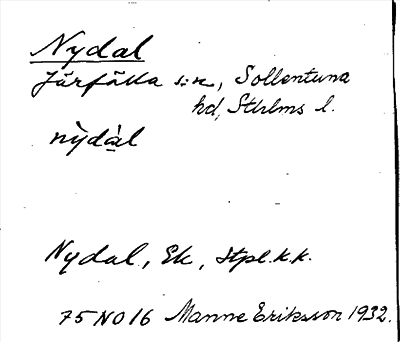 Nydal
Järfälla s:n, Sollentuna
hd, Sthlms l.
nỳdál
Nydal, Ek, stpl.k.k.
75 NO 16 Manne Eriksson 1932.